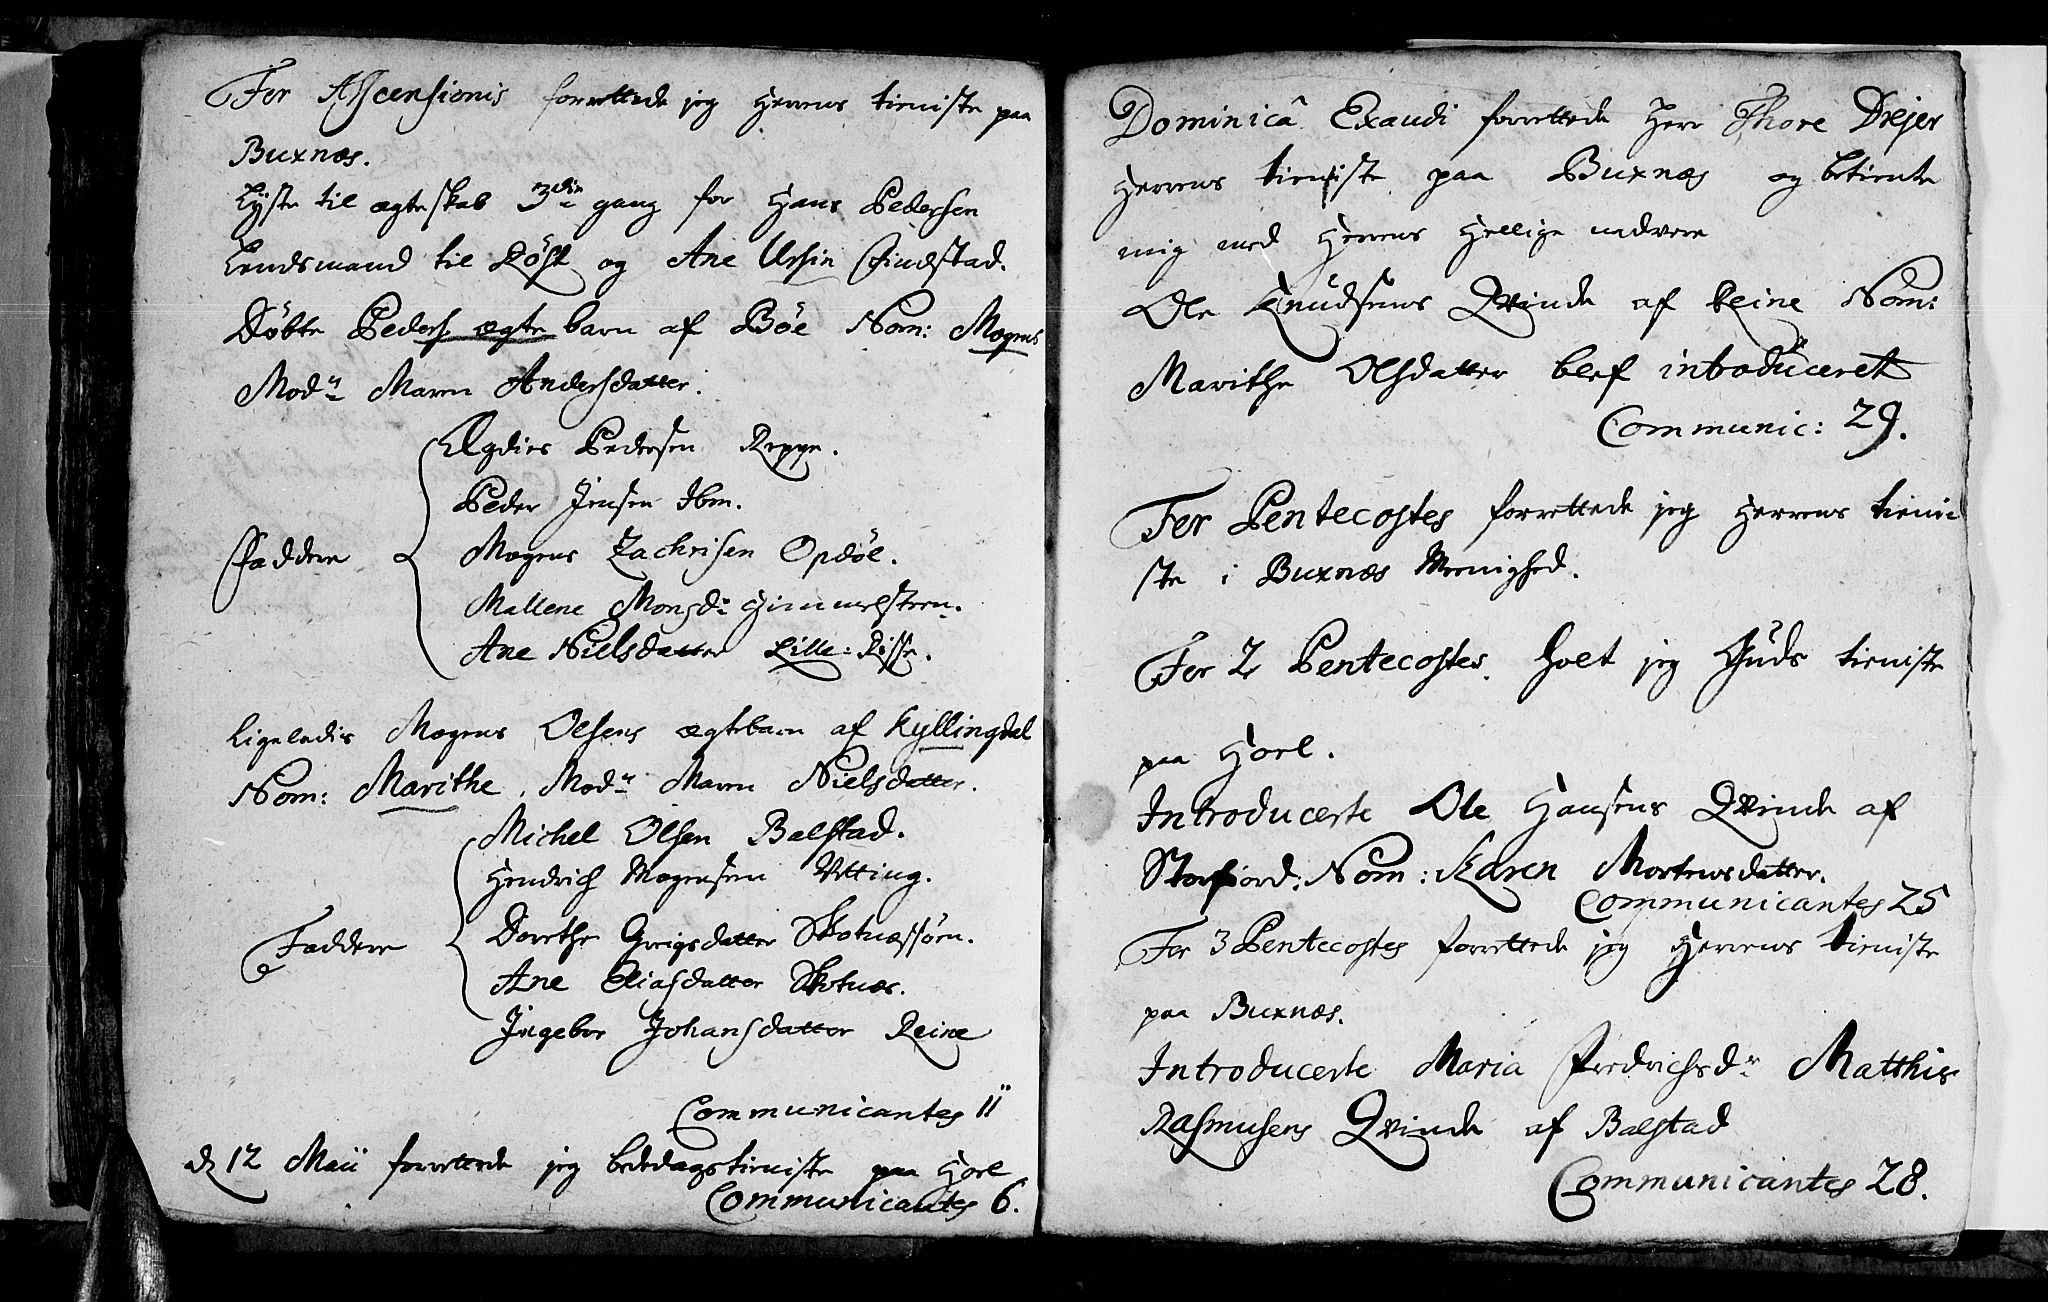 Fer Ascensionis forrettede jeg Herrens tieniste paa
Buxnæs.
Lyste til ægteskab 3die gang for Hans Pedersen
Lendsmand til Røst og Ane Ursin Findstad.
Døbte Peders ægte barn af Böe Nom: Mogens
Modn Maren Andersdatter.
Ægdies Pedersen Reppe.
Peder Jensen Ibm.
Faddere Mogens Zachrisen Opdöl.
Mallene Monsdr Himmelsteen.
Ane Nielsdatter Lille: Risse.
Ligeledis Mogens Olsens ægtebarn af Kyllingdal
Nom: Marithe. Modn Maren Nielsdatter.
Michel Olsen Balstad.
Hendrich Mogensen Vetting.
Faddere Dorthe Greigsdatter Skotnæssøen.
Ane Eliasdatter Skotnæs.
Ingebor Johansdatter Reine
Communicantes 11
d 12 Maii forrettede jeg bededagstieniste paa Hoel
Communicantes 6.
Dominicâ Exaudi forrettede Herr Thore Drejer
Herrens tieniste paa Buxnæs og betiente
mig med Herrens Hellige nadvere
Ole Knudsens Qvinde af Reine Nom:
Marithe Olsdatter blef introduceret
Communic: 29.
Fer Pentecostes forrettede jeg Herrens tieni
ste i Buxnæs Meenighed.
Fer 2 Pentecostes holt jeg Guds tieniste
paa Hoel.
Introducerte Ole Hansens Qvinde af
Storfiord: Nom: Karen Mortensdatter.
Communicantes 25
Fer 3 Pentecostes forrettede jeg Herrens tieniste
paa Buxnæs.
Introducerte Maria Fredrichsdr Matthis
Rasmusens Qvinde af Balstad
Communicantes 28.